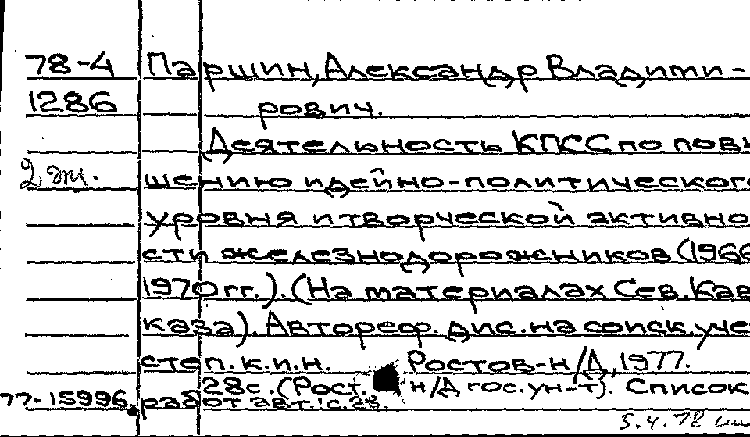 78-4 Паршин, Александр Владими-
1286 рович.
Деятельность КПСС по повы
2 эк. шению идейно-политического
уровня и творческой активно
сти железнодорожников (1966
1970 гг.). (На материалах Сев. Кав
каза). Автореф. дис. на соиск. уче
степ. к.и.н. Ростов-н/Д, 1977.
28 с. (Рост. н/Д гос. ун-т). Список
77-15996 работ авт.: с. 28.
5.4.78